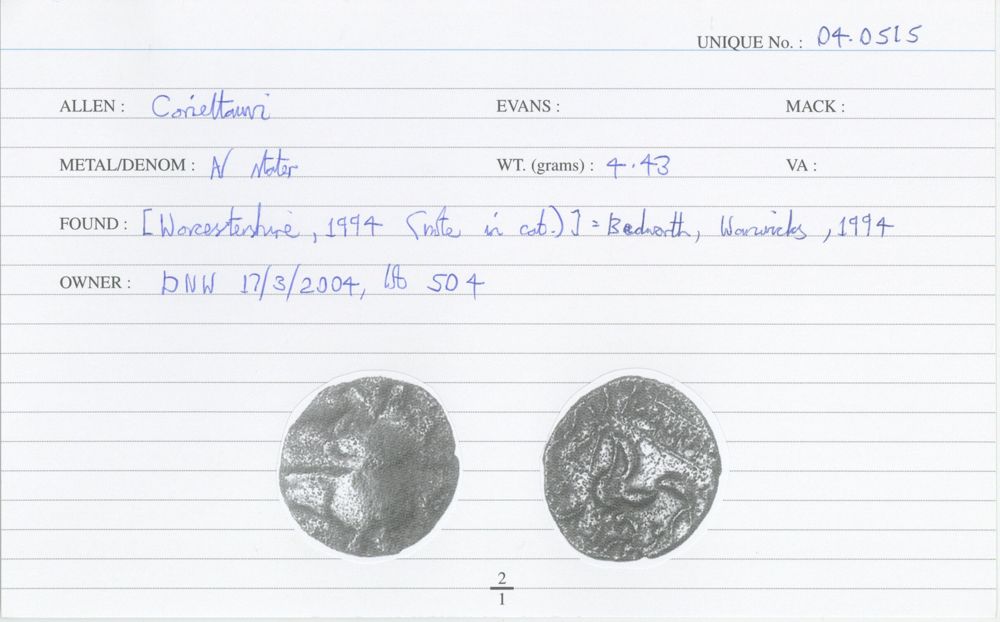 UNIQUE No. : 04.0515
ALLEN : Corieltauvi EVANS : MACK :
METAL/DENOM : N stater WT. (grams) : 4.43 VA :
FOUND : [Worcestershire, 1994 (note in cat.)] = Bedworth, Warwicks, 1994
OWNER : DNW 17/3/2004, lot 504
2
1